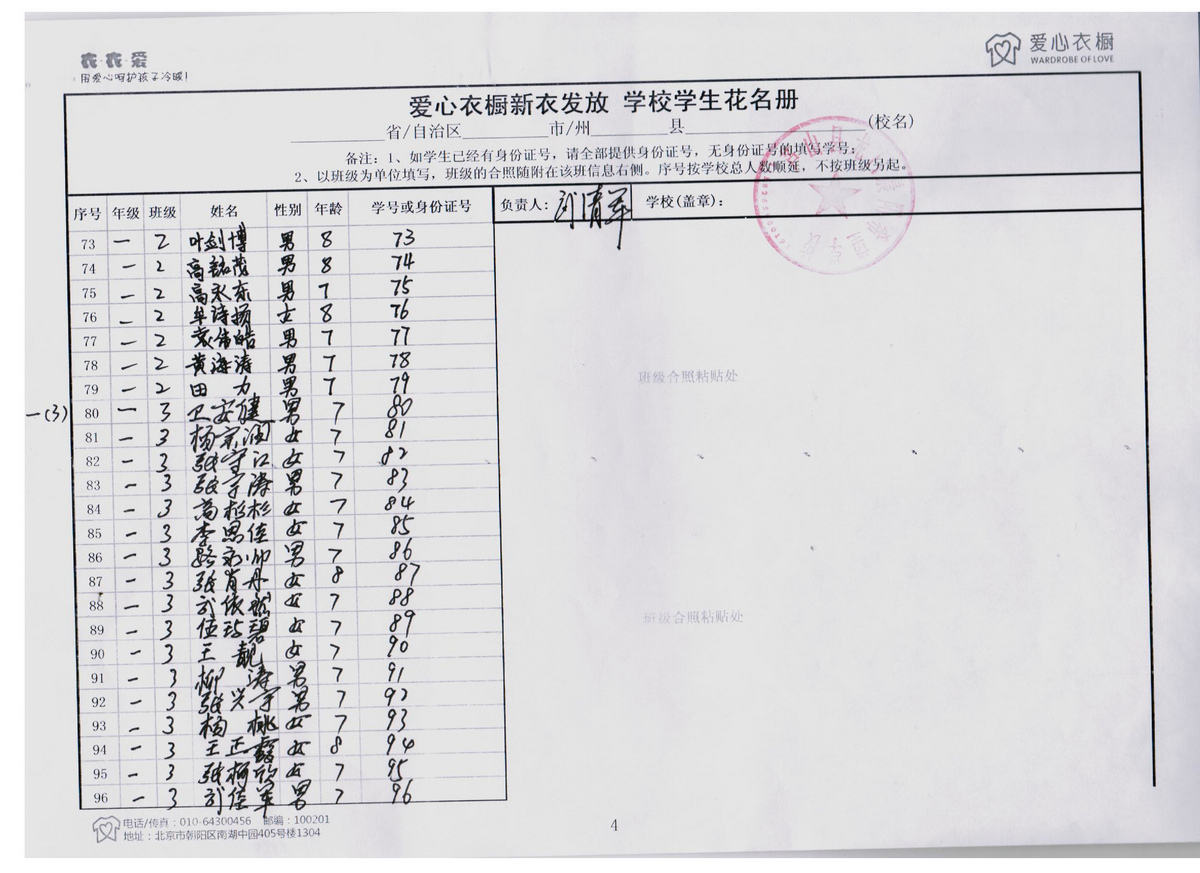 衣·衣·爱
用爱心呵护孩子冷暖!
爱心衣橱
WARDROBE OF LOVE
爱心衣橱新衣发放 学校学生花名册
省/自治区 市/州 县 (校名)
备注:1、如学生已经有身份证号,请全部提供身份证号,无身份证号的填写学号;
2、以班级为单位填写,班级的合照随附在该班信息右侧。序号按学校总人数顺延,不按班级另起。
序号 年级 班级 姓名 性别 年龄 学号或身份证号 负责人: 刘清军 学校(盖章):
73 一 2 叶剑博 男 8 73
74 一 2 高铭茂 男 8 74
75 一 2 高永东 男 7 75
76 一 2 牟诗扬 女 8 76
77 一 2 袁伟皓 男 7 77
78 一 2 黄海涛 男 7 78
79 一 2 田力 男 7 79
一(3) 80 一 3 卫安健 男 7 80
81 一 3 杨宗润 女 7 81
82 一 3 张守江 女 7 82
83 一 3 张宇涛 男 7 83
84 一 3 高杉杉 女 7 84
85 一 3 李思佳 女 7 85
86 一 3 男 7 86
87 一 3 张肖丹 女 8 87
88 一 3 刘依 女 7 88
89 一 3 伍 碧 女 7 89
90 一 3 王靓 女 7 90
91 一 3 柳涛 男 7 91
92 一 3 张兴宇 男 7 92
93 一 3 杨桃 女 7 93
94 一 3 王正霞 女 8 94
95 一 3 张柯欣 女 7 95
96 一 3 刘佳军 男 7 96
班级合照粘贴处
班级合照粘贴处
电话/传真:010-64300456 邮编:100201
地址:北京市朝阳区南湖中园405号楼1304
4